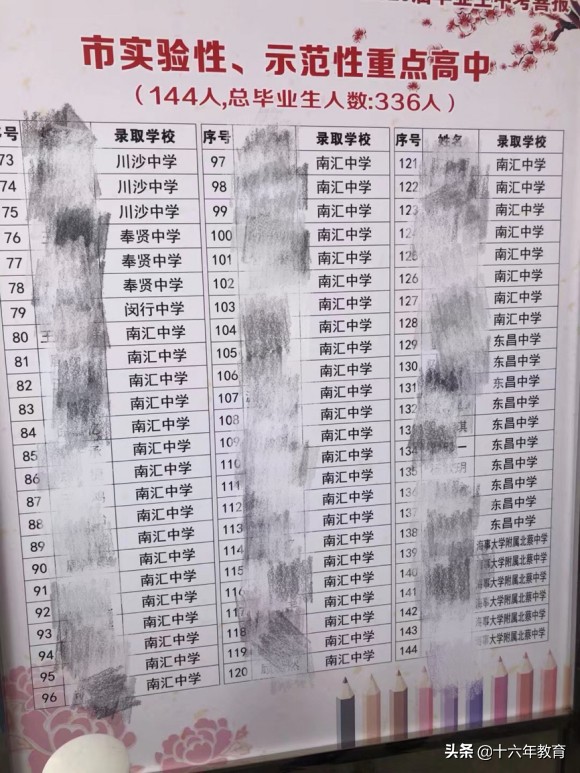 届毕业生中考喜报
市实验性、示范性重点高中
（144人,总毕业生人数:336人）
号 录取学校
73 川沙中学
74 川沙中学
75 川沙中学
76 奉贤中学
77 奉贤中学
78 奉贤中学
79 闵行中学
80 王 南汇中学
81 南汇中学
82 南汇中学
83 南汇中学
84 南汇中学
85 南汇中学
86 南汇中学
87 南汇中学
88 南汇中学
89 南汇中学
90 南汇中学
91 南汇中学
92 南汇中学
93 南汇中学
94 南汇中学
95 南汇中学
96 南汇中学
序号 录取学校
97 南汇中学
98 南汇中学
99 南汇中学
100 南汇中学
101 南汇中学
102 南汇中学
103 南汇中学
104 南汇中学
105 南汇中学
106 南汇中学
107 南汇中学
108 南汇中学
109 南汇中学
110 南汇中学
111 南汇中学
112 南汇中学
113 南汇中学
114 南汇中学
115 南汇中学
116 南汇中学
117 南汇中学
118 南汇中学
119 南汇中学
120 南汇中学
序号 姓名 录取学校
121 南汇中学
122 南汇中学
123 南汇中学
124 南汇中学
125 南汇中学
126 南汇中学
127 南汇中学
128 南汇中学
129 东昌中学
130 东昌中学
131 东昌中学
132 东昌中学
133 东昌中学
134 东昌中学
135 东昌中学
136 东昌中学
137 东昌中学
138 东昌中学
139 海事大学附属北蔡中学
140 海事大学附属北蔡中学
141 海事大学附属北蔡中学
142 海事大学附属北蔡中学
143 海事大学附属北蔡中学
144 海事大学附属北蔡中学
头条 @十六年教育